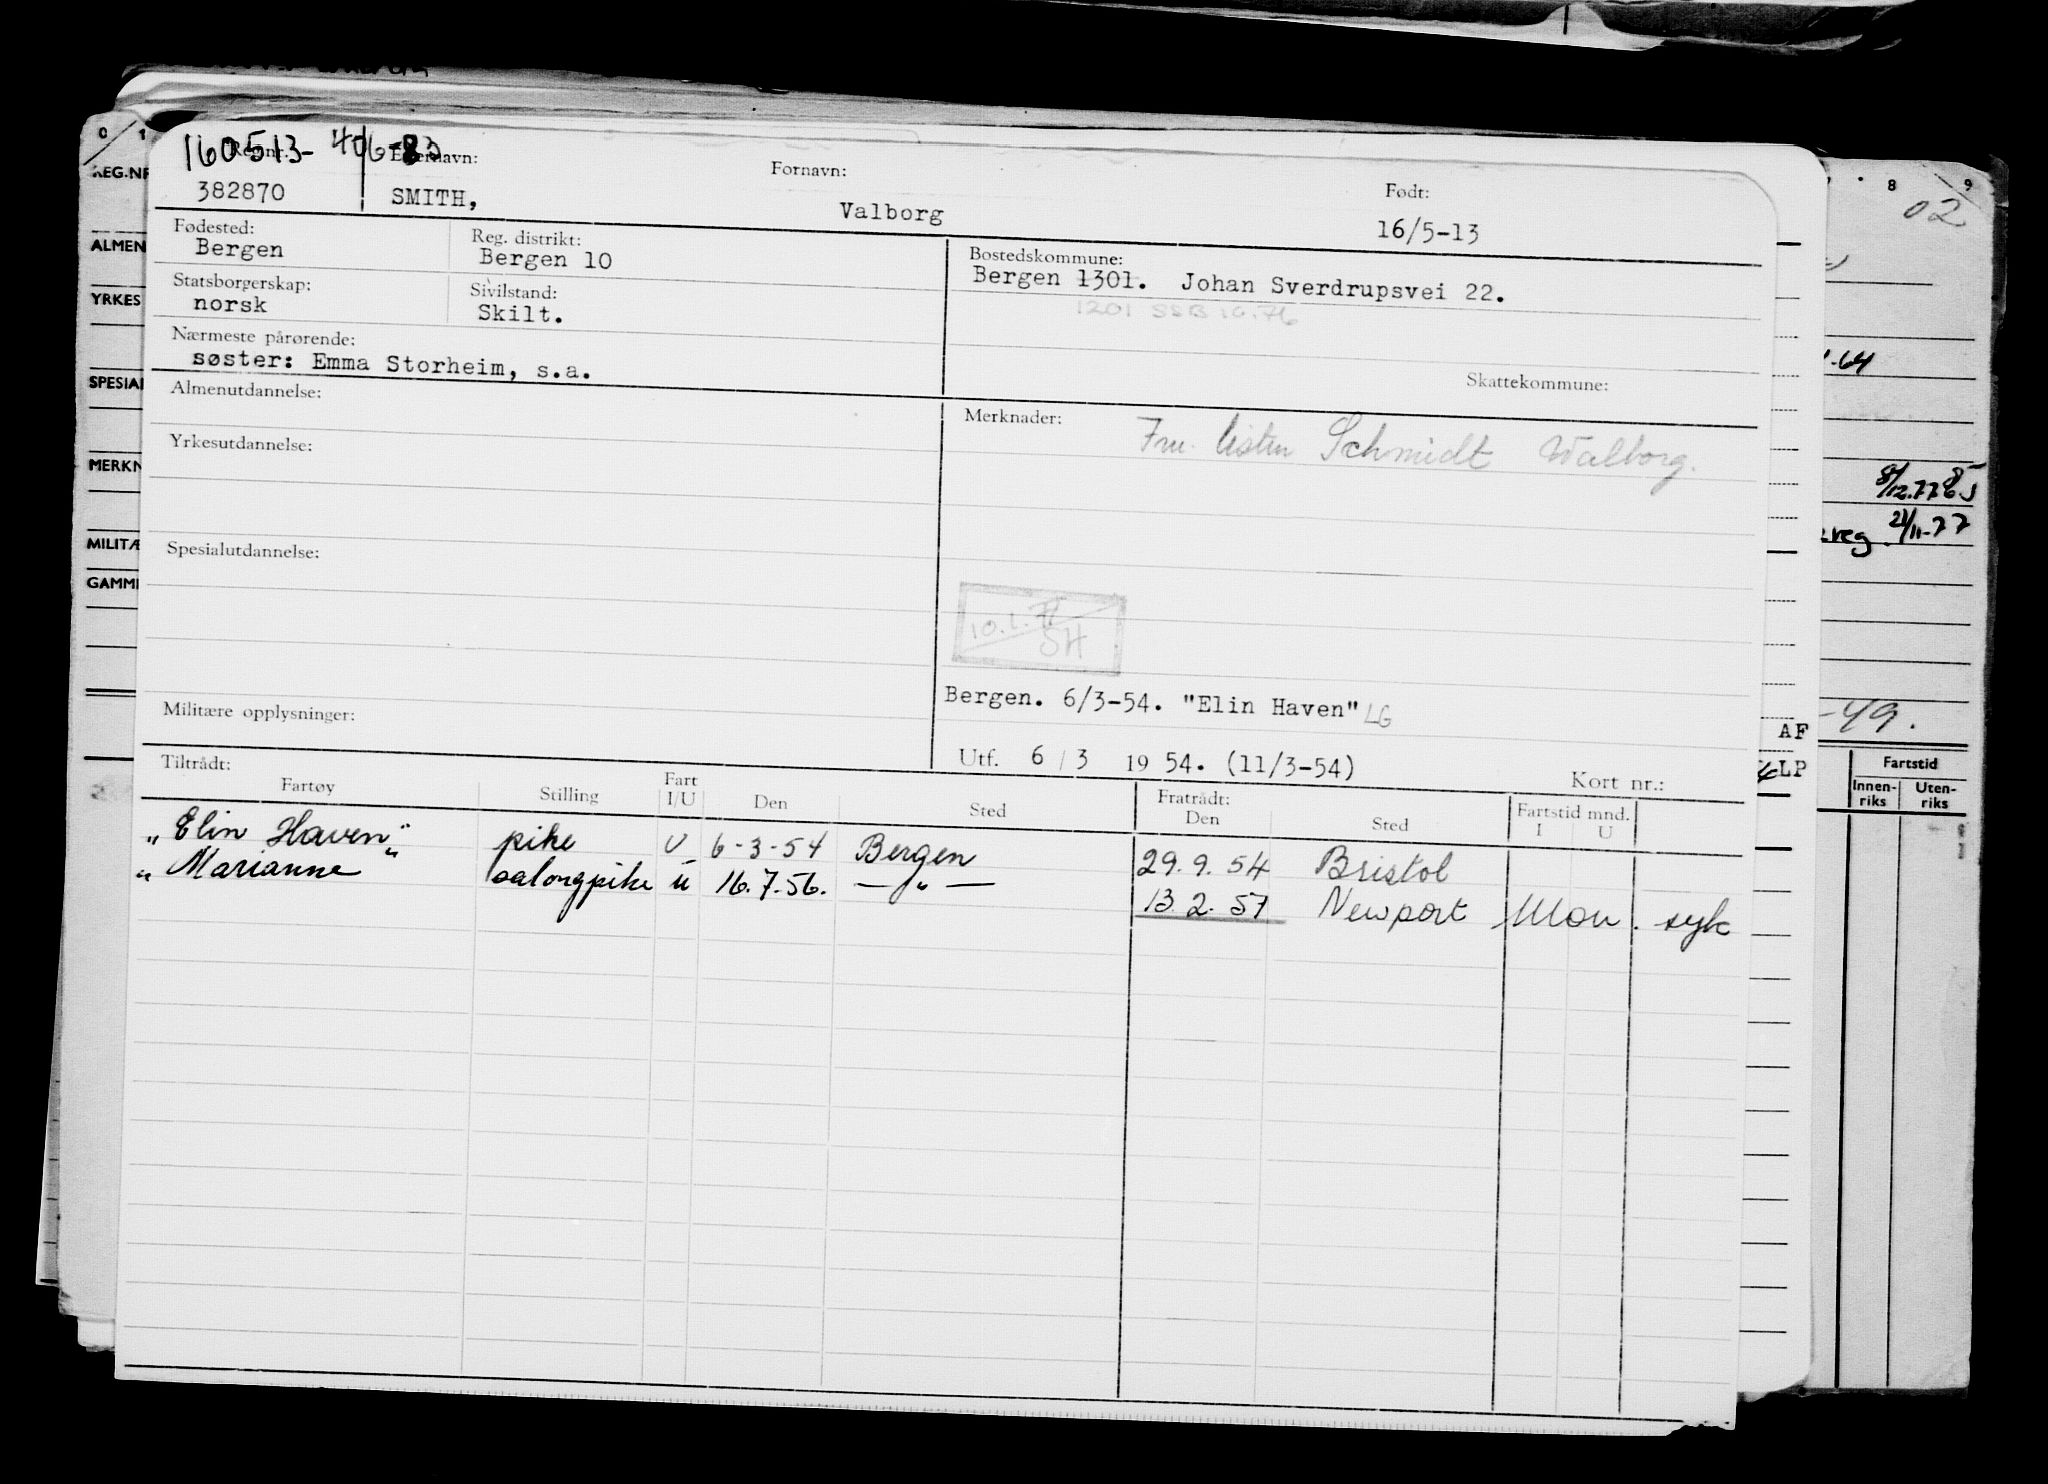 160513-
Fornavn:
Født:
382870 SMITH, Valborg 16/5-13
Fødested: Reg. distrikt: Bostedskommune:
Bergen Bergen 10 Bergen 1301. Johan Sverdrupsvei 22.
Statsborgerskap: Sivilstand:
norsk Skilt. 1201 SSB 10.76
Nærmeste pårørende:
søster: Emma Storheim, s.a.
Skattekommune:
Almenutdannelse: Merknader:
Schmidt Walborg.
Yrkesutdannelse:
Spesialutdannelse:
SH
Bergen. 6/3-54. "Elin Haven" LG
Militære opplysninger:
Utf. 6 / 3 19 54. (11/3-54)
Kort nr.:
Tiltrådt: Fratrådt:
Fartøy Stilling Fart I/U Den Sted Den Sted Fartstid mnd. I U
"Elin Haven" pike U 6-3-54 Bergen 29.9.54 Bristol
"Marianne" salongpike u 16.7.56. — " — 13.2.57 Newport Mon. syk
0 1
REG.NR
ALMEN
YRKES
SPESIAL
MERKN
MILITÆ
GAMM
8 9
02
-64
8/12.77
reg. 21/11-77
-49.
AF
LP
Fartstid
Innen-riks Uten-riks